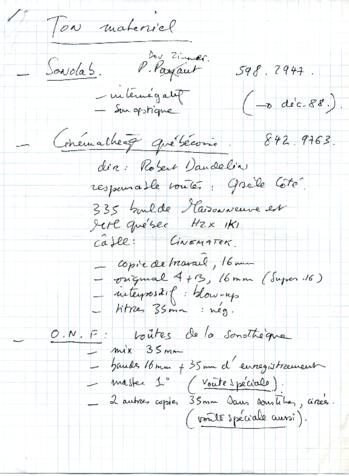 Ton matériel
Don Zimmer.
— Sonolab. P. Parfaut 598.2947.
— internégatif
— Son optique (→ déc. 88.)
— Cinémathèq québécoise. 842.9763.
dir: Robert Daudelin
responsable voûtes: Gisèle Côté.
335 boul de Maisonneuve est
Mtl québec H2X 1K1
câble: CINEMATEK.
— copie de travail, 16mm
— original A+B, 16mm (super.16)
— interpositif: blow-up
— titres 35mm: nég.
— O.N.F: voûtes de la sonothèque
— mix 35mm
— bandes 16mm + 35mm d'enregistrement
— master 1" (voûte spéciale).
— 2 autres copies 35mm sous-titrées, cirées.
(voûte spéciale aussi).